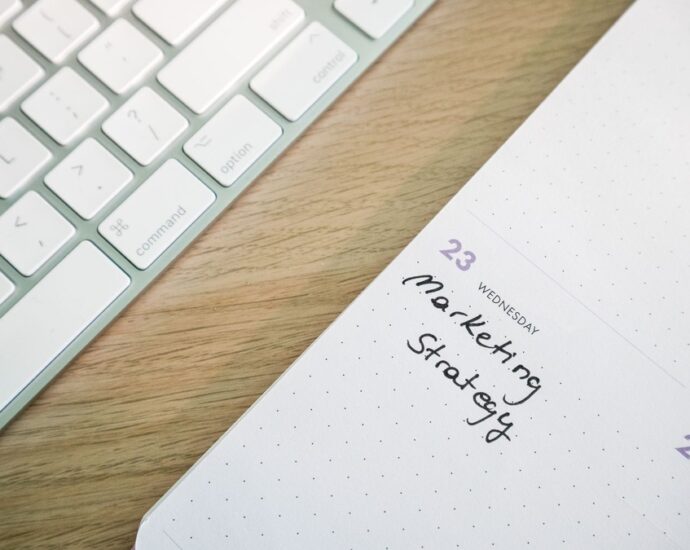 shift
control
option
command
⌘
⌥
^
?
/
>
.
<
,
L
23
WEDNESDAY
Marketing
Strategy
2